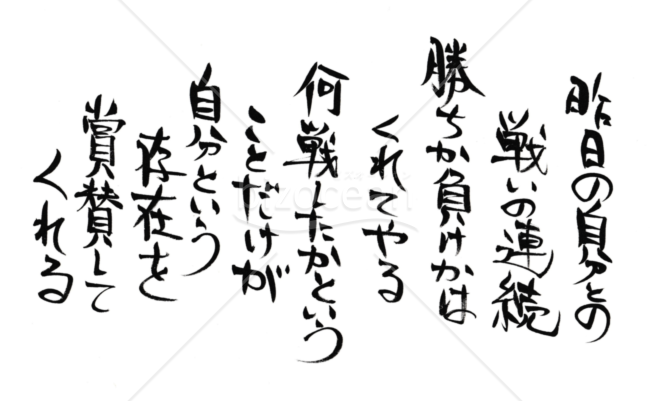 昨日の自分との
戦いの連続
勝ちか負けかは
くれてやる
何戦したかという
ことだけが
自分という
存在を
賞賛して
くれる
bizocean